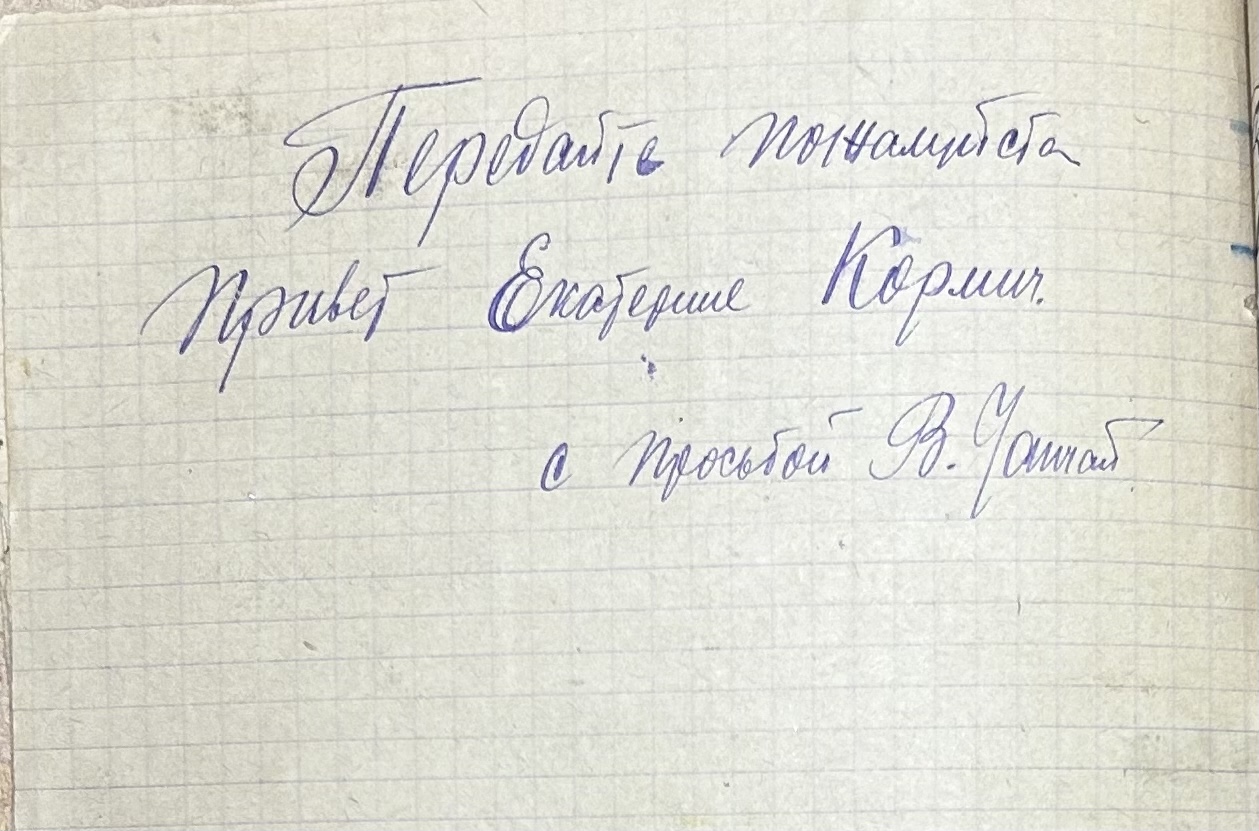 Передайте пожалуйста
Привет Екатерине Кормич.
с просьбой В.